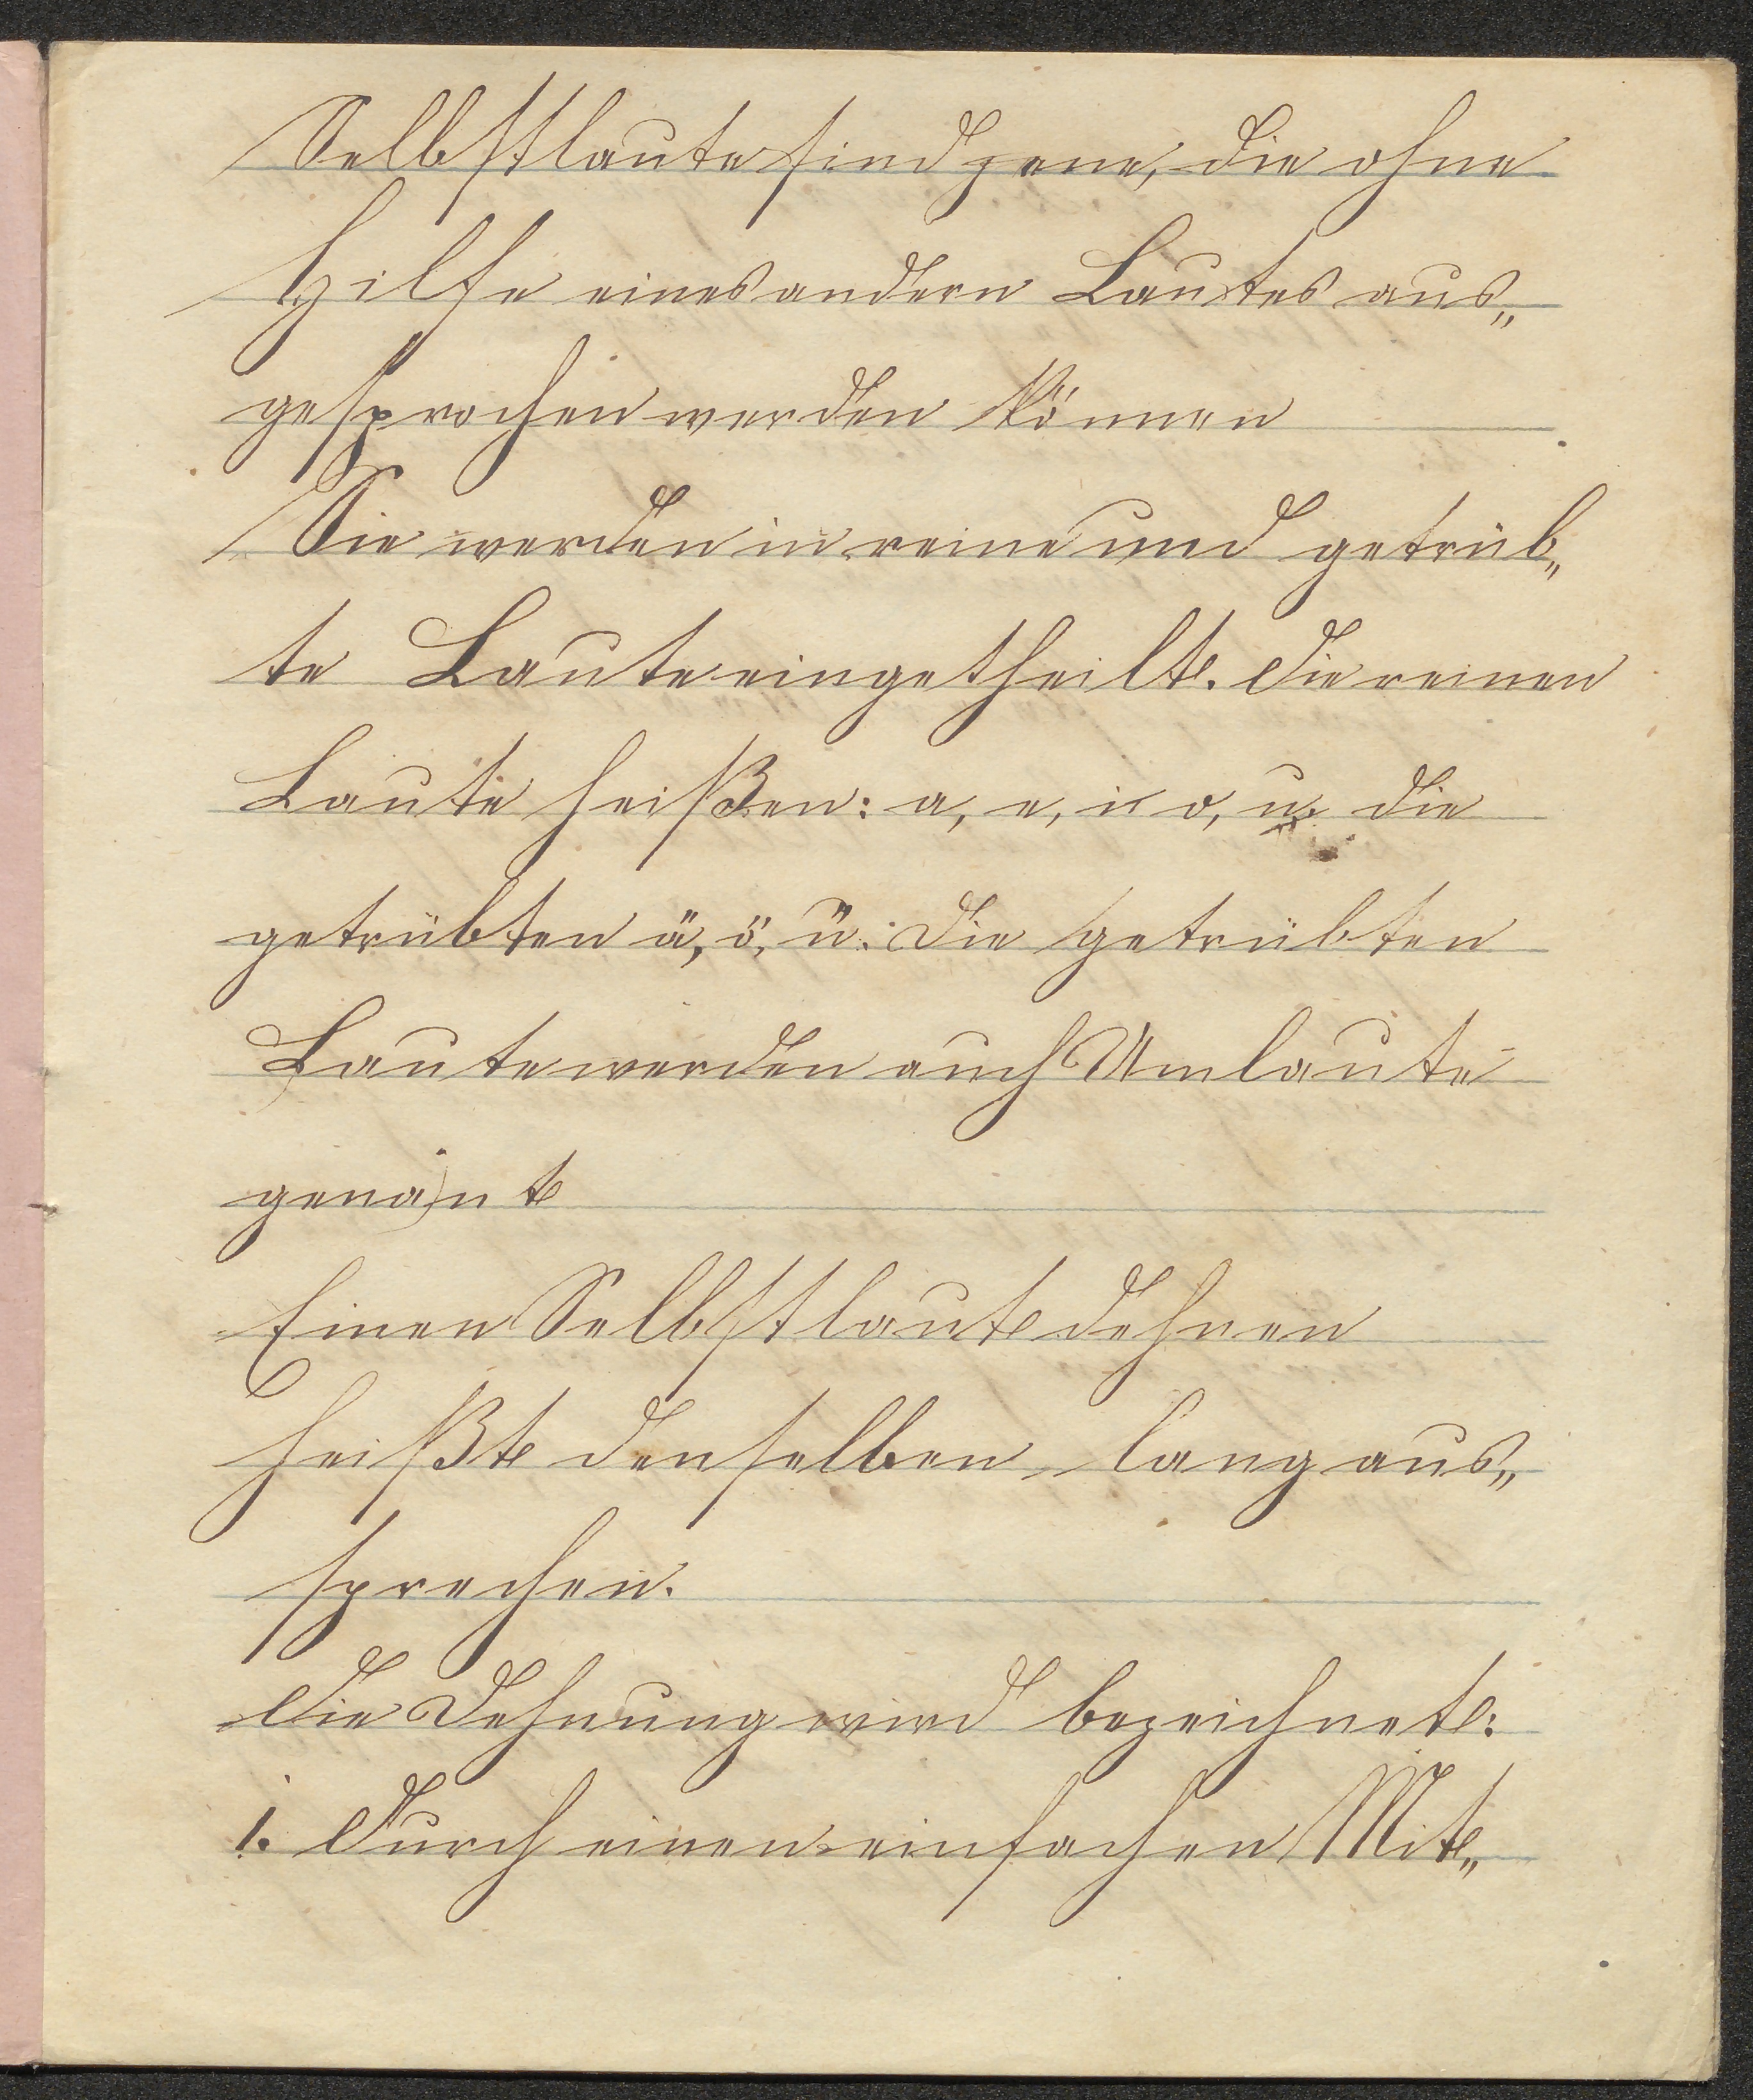 Selbstlaute sind jene, die ohne
Hilfe eines andern Lautes aus„
gesprochen werden können
Sie werden in reine und getrüb„
te Laute eingetheilt. Die reinen
Laute heißen: a, e, i, o, u. die
getrübten ä, ö, ü. Die getrübten
Laute werden auch Umlaute
genant
Einen Selbstlaut dehnen
heißt denselben lang aus„
sprechen.
Die Dehnung wird bezeichnet:
1. Durch einen einfachen Mit„